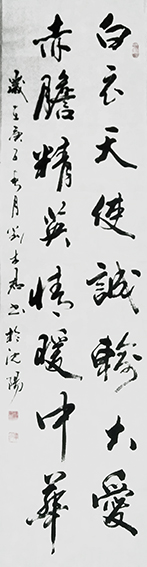 白衣天使誠輸大愛
赤膽精英情暖中華
歲在庚子春月劉士忠書於沈陽